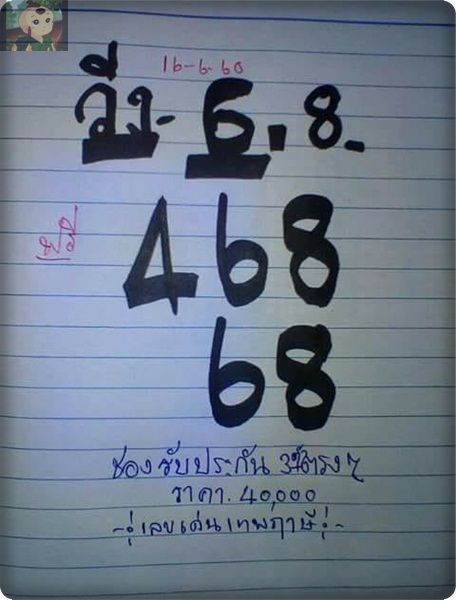 16-6-60
วิ่ง- 6. 8.
468
68
ซองรับประกัน 3ตัวตรงๆ
ราคา. 40,000
-:เลขเด่นเทพฤาษี:-